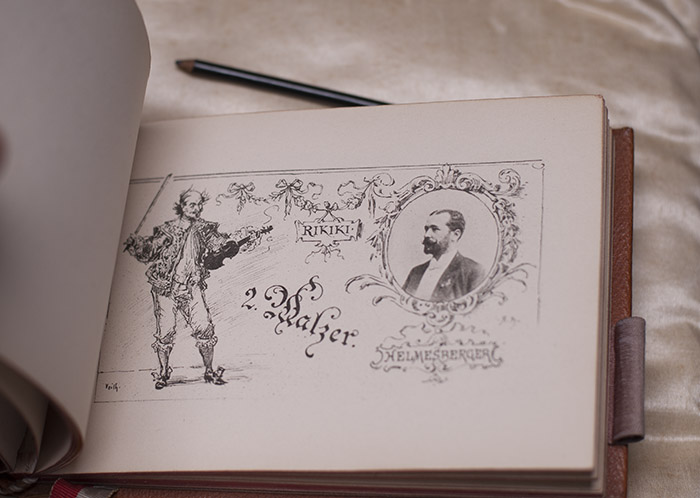 RIKIKI
2. Walzer.
HELMESBERGER